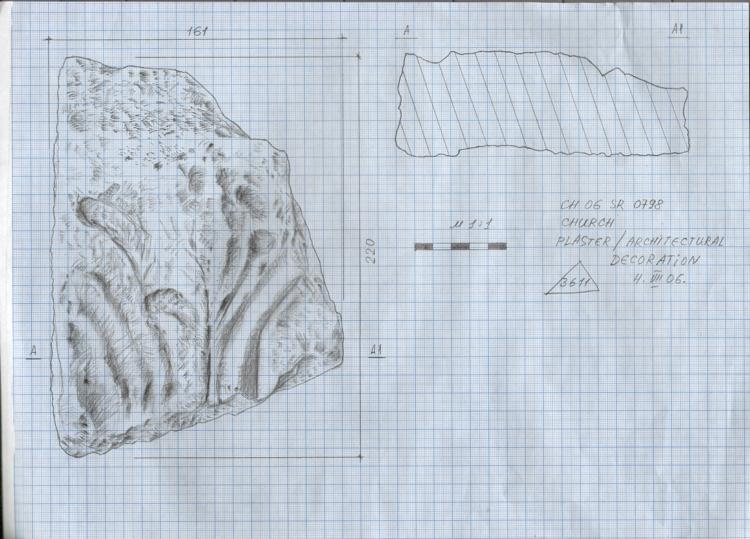 161
A
A1
220
M 1:1
CH 06 SR 0798
CHURCH
PLASTER/ARCHITECTURAL
DECORATION
4. VIII 06.
3611
A
A1